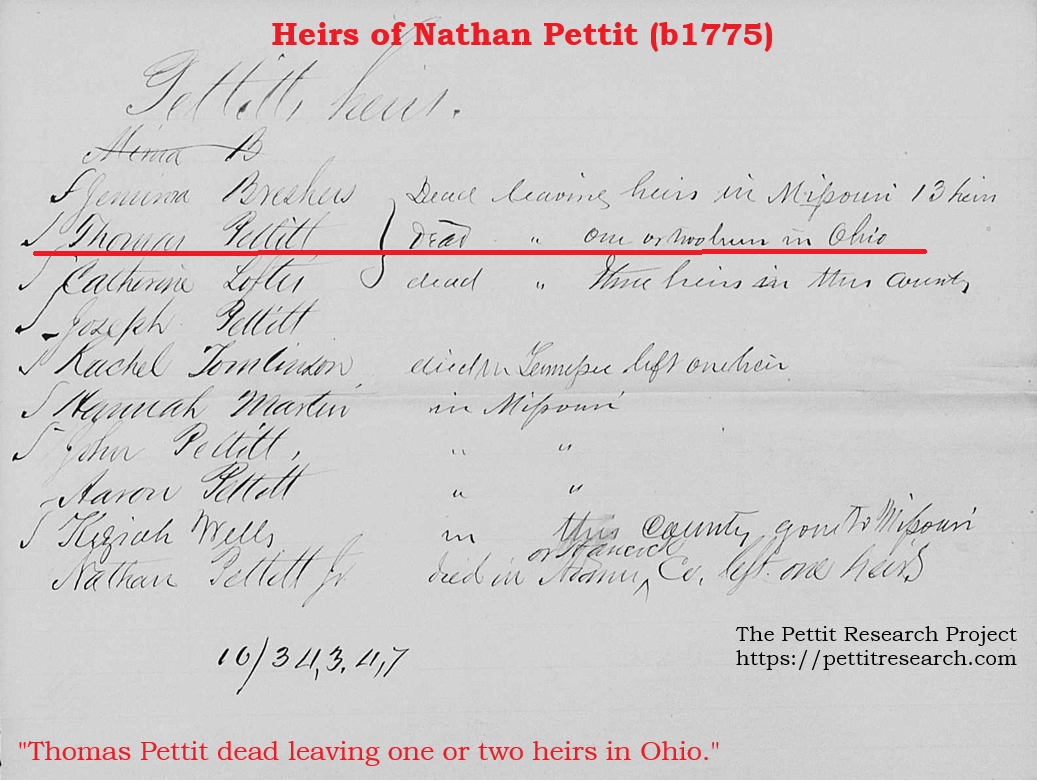 Heirs of Nathan Pettit (b1775)
Pettitt heirs.
Mima B
Jemima Breshers Dead leaving heirs in Missouri 13 heirs
Thomas Pettitt dead " one or two heirs in Ohio
Catherine Lofter dead " three heirs in this county
Joseph Pettitt
Rachel Tomlinson died in Tennessee left one heir
Hannah Martin in Missouri
John Pettitt, " "
Aaron Pettitt " "
Keziah Wells in this County gone to Missouri
or Hancock
Nathan Pettitt Jr died in Adams Co. left one heirs
10/34,3.4,7
The Pettit Research Project
https://pettitresearch.com
"Thomas Pettit dead leaving one or two heirs in Ohio."